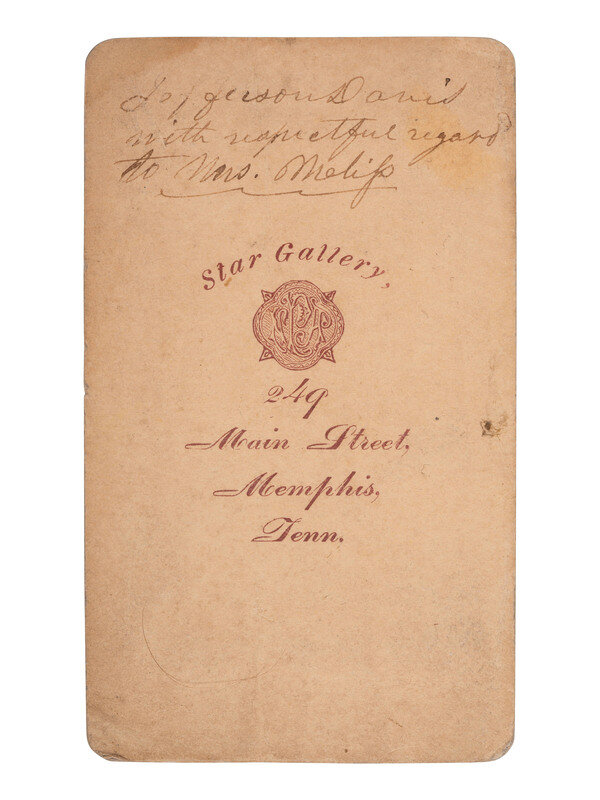 Jefferson Davis
with respectful regard
to Mrs. Meliss
Star Gallery,
249
Main Street,
Memphis,
Tenn.